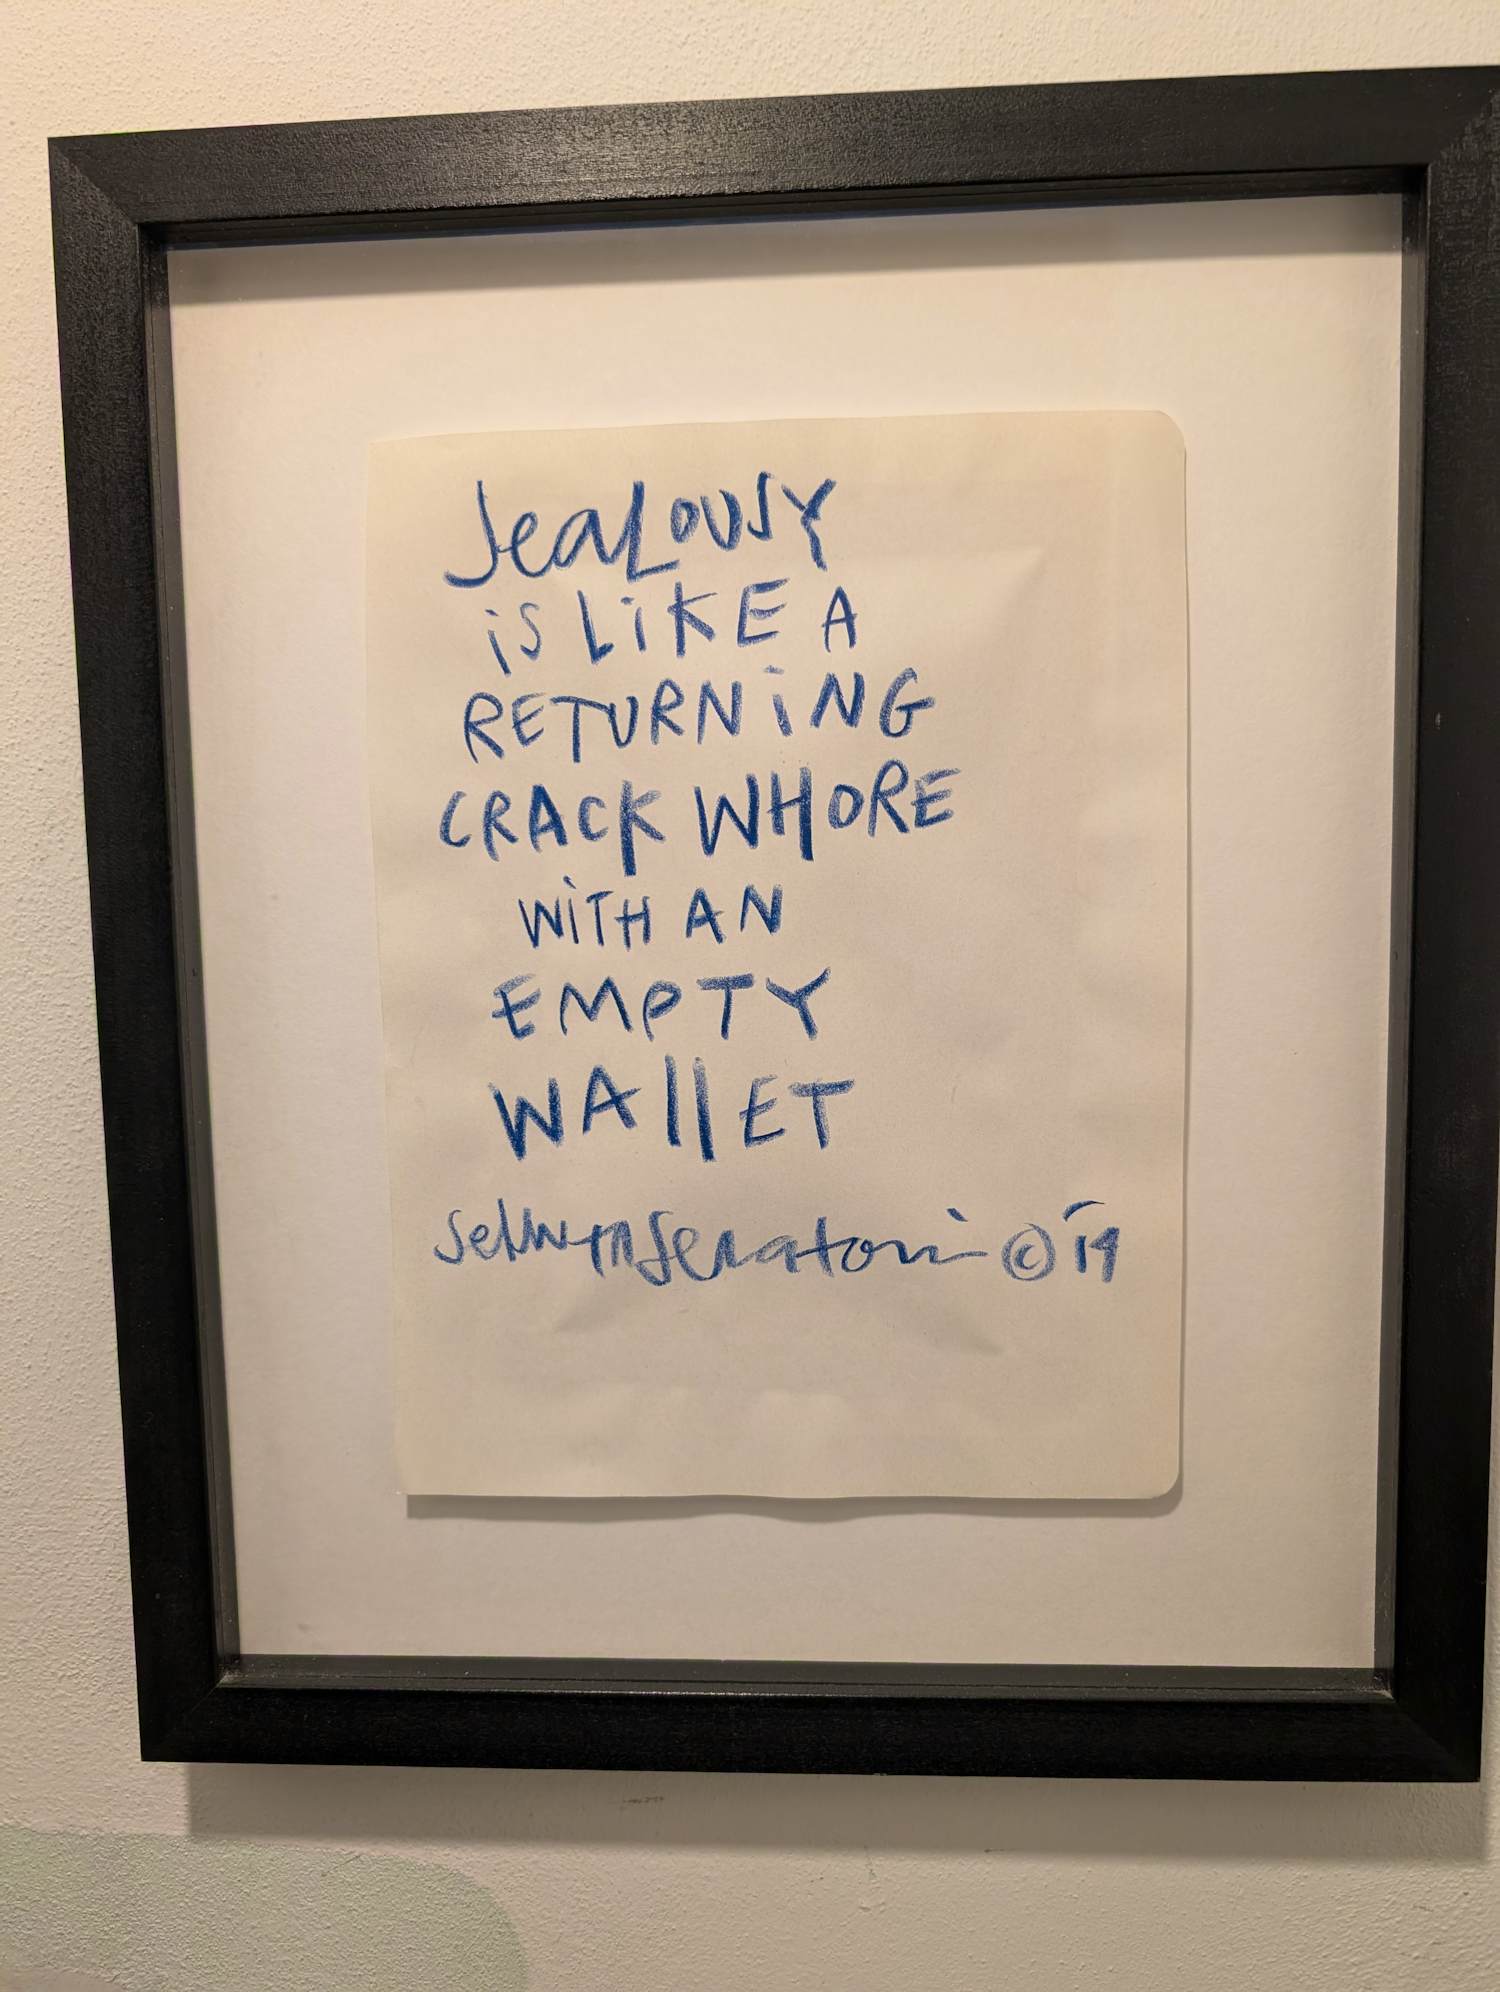 Jealousy
is LiKE A
RETURNiNG
CRACK WHORE
WiTH AN
EMPTY
WAllET
Selwyn Senatori © '19